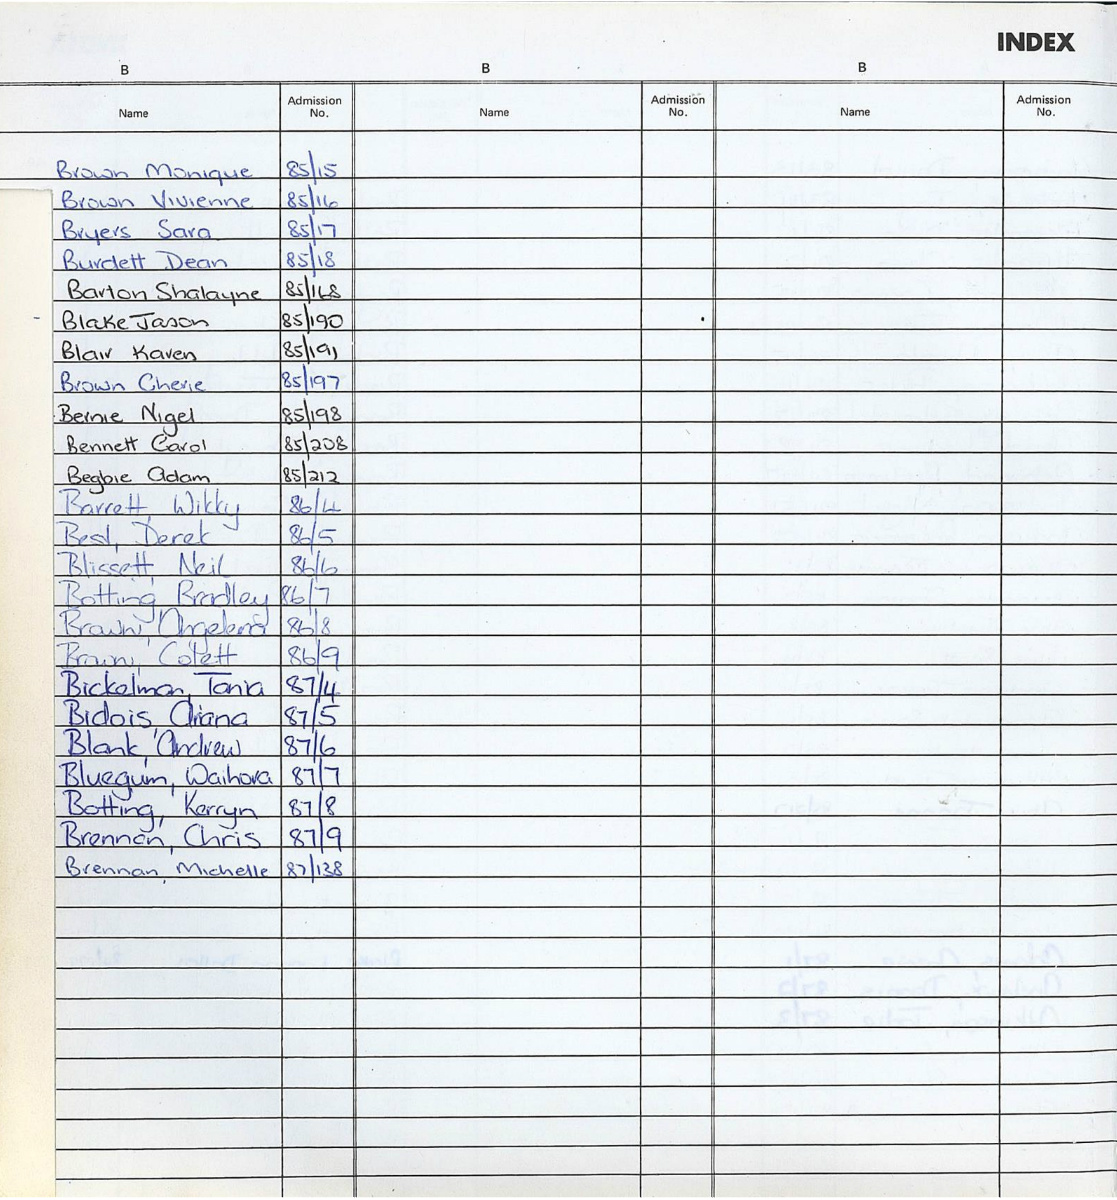 INDEX
B B B
Name Admission No. Name Admission No. Name Admission No.
Brown Monique 85/15
Brown Vivienne 85/16
Bryers Sara 85/17
Burdett Dean 85/18
Barton Shalayne 85/168
Blake Jason 85/190
Blair Karen 85/191
Brown Cherie 85/197
Bernie Nigel 85/198
Bennett Carol 85/208
Begbie Adam 85/212
Barrett, Wikky 86/4
Best, Derek 86/5
Blissett Neil 86/6
Botting, Bradley 86/7
Brown, 86/8
Brown, Colett 86/9
Bickelman, Tania 87/4
Bidois, Ariana 87/5
Blank, Andrew 87/6
Bluegum, Waihora 87/7
Botting, Kerryn 87/8
Brennan, Chris 87/9
Brennan, Michelle 87/138